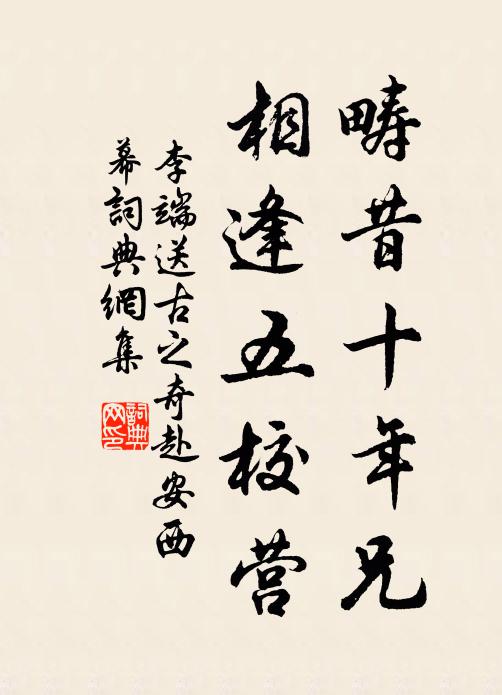 畴昔十年兄
相逢五校营
李端送古之奇赴安西
幕詞典網集
詞典
网印